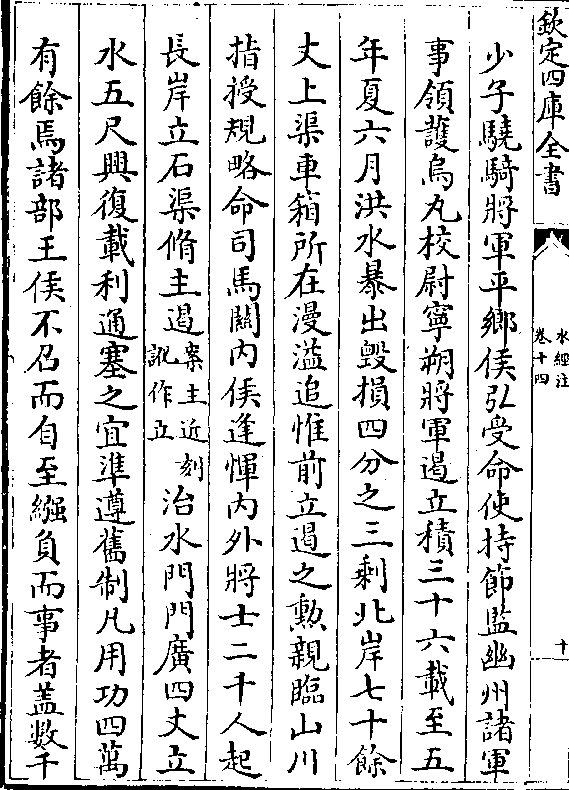 欽定四庫全書
水經注
卷十四
十
少子驍騎將軍平鄉侯弘受命使持節監幽州諸軍
事領護烏丸校尉寧朔將軍遏立積三十六載至五
年夏六月洪水暴出毀損四分之三剩北岸七十餘
丈上渠車箱所在漫溢追惟前立遏之勲親臨山川
指授規略命司馬關内侯逄惲内外將士二千人起
長岸立石渠脩主遏案主近刻訛作立治水門門廣四丈立
水五尺興復載利通塞之宜準遵舊制凡用功四萬
有餘焉諸部王侯不召而自至繦負而事者蓋數千